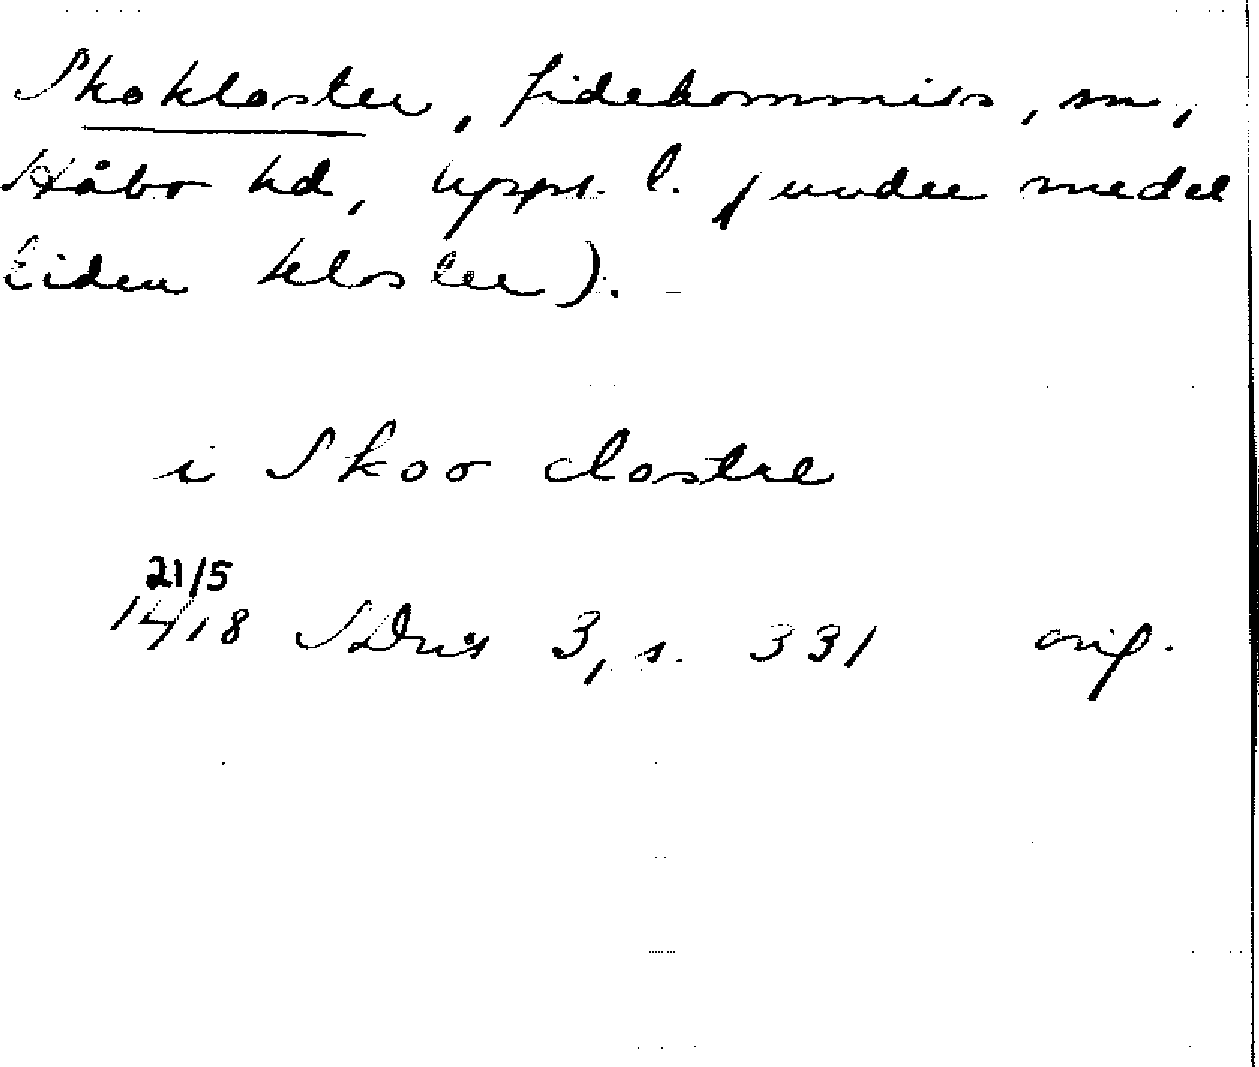 Skokloster, fideikommiss, sn,
Håbo hd, Uppl. l. (under medel
tiden kloster).
i Skoo clostre
21/5
1418 SDns 3, s. 331 orig.